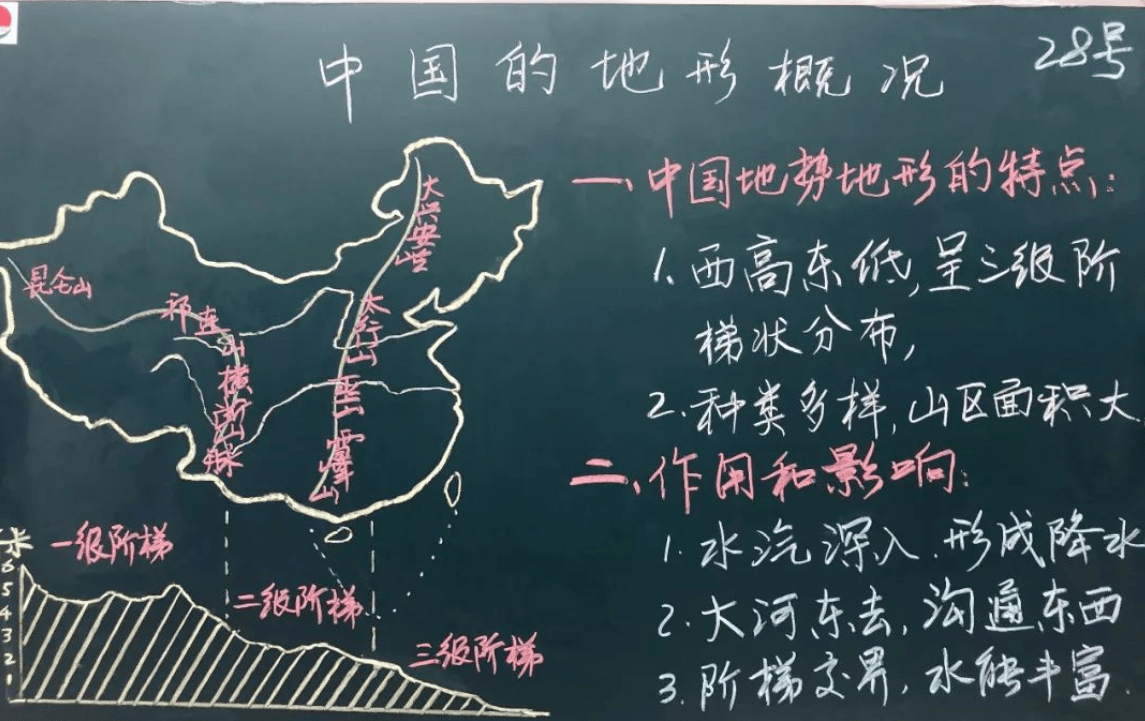 中国的地形概况
28号
一、中国地势地形的特点:
1.西高东低,呈三级阶
梯状分布,
2.种类多样,山区面积大
二、作用和影响:
1.水汽深入.形成降水
2.大河东去,沟通东西
3.阶梯交界,水能丰富.
大兴安岭
昆仑山
祁连山
横断山脉
太行山
巫山
雪峰山
米
6
5
4
3
2
1
一级阶梯
二级阶梯
三级阶梯